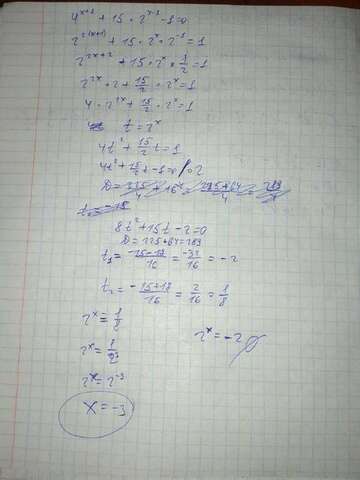 4^{x+1} + 15 · 2^{x-1} - 1 = 0
2^{2(x+1)} + 15 · 2^x · 2^{-1} = 1
2^{2x+2} + 15 · 2^x · \frac{1}{2} = 1
2^{2x} · 2 + \frac{15}{2} · 2^x = 1
4 · 2^{2x} + \frac{15}{2} · 2^x = 1
t = 2^x
4t^2 + \frac{15}{2} t = 1
4t^2 + \frac{15}{2} t - 1 = 0 / · 2
D = \frac{225}{4} + 16 = \frac{225+64}{4} = \frac{289}{4}
8t^2 + 15t - 2 = 0
D = 225 + 64 = 289
t_1 = \frac{-15-17}{16} = \frac{-32}{16} = -2
t_2 = \frac{-15+17}{16} = \frac{2}{16} = \frac{1}{8}
2^x = \frac{1}{8} 2^x = -2 ∅
2^x = \frac{1}{2^3}
2^x = 2^{-3}
x = -3